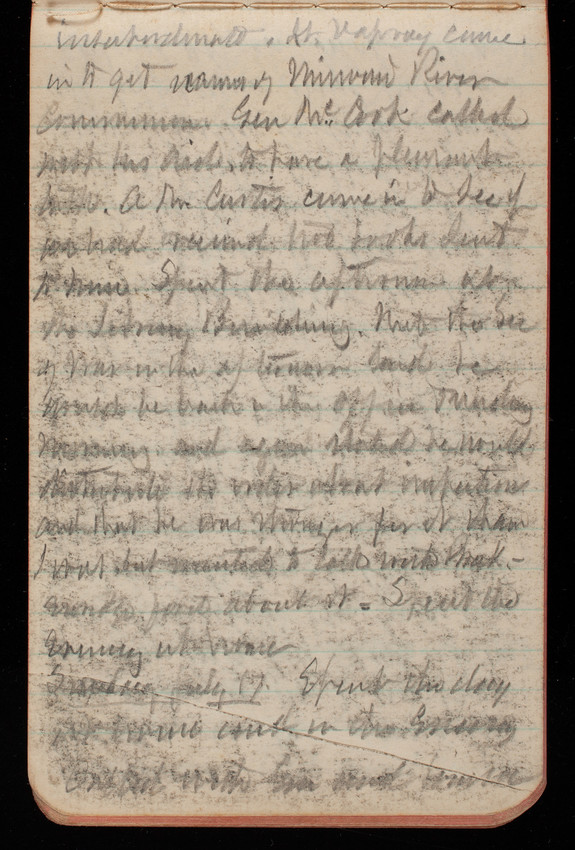 insubordinate. Mr. Vaproay came
in to get names of Missouri River
Commission. Gen McCook called
with his Aide, to have a pleasant
talk. A Mr. Curtis came in to see if
we had received hot books sent
to him. Spent the afternoon at
the Library Building. Met the Sec
of War in the afternoon said he
would be back in the office Tuesday
morning and again stated he would
the order about inspections
and that he was stronger for it than
I was but wanted to talk with
first about it - Spent the
Evening at home
Sunday, July 17. Spent the day
at home and in the Evening
called with